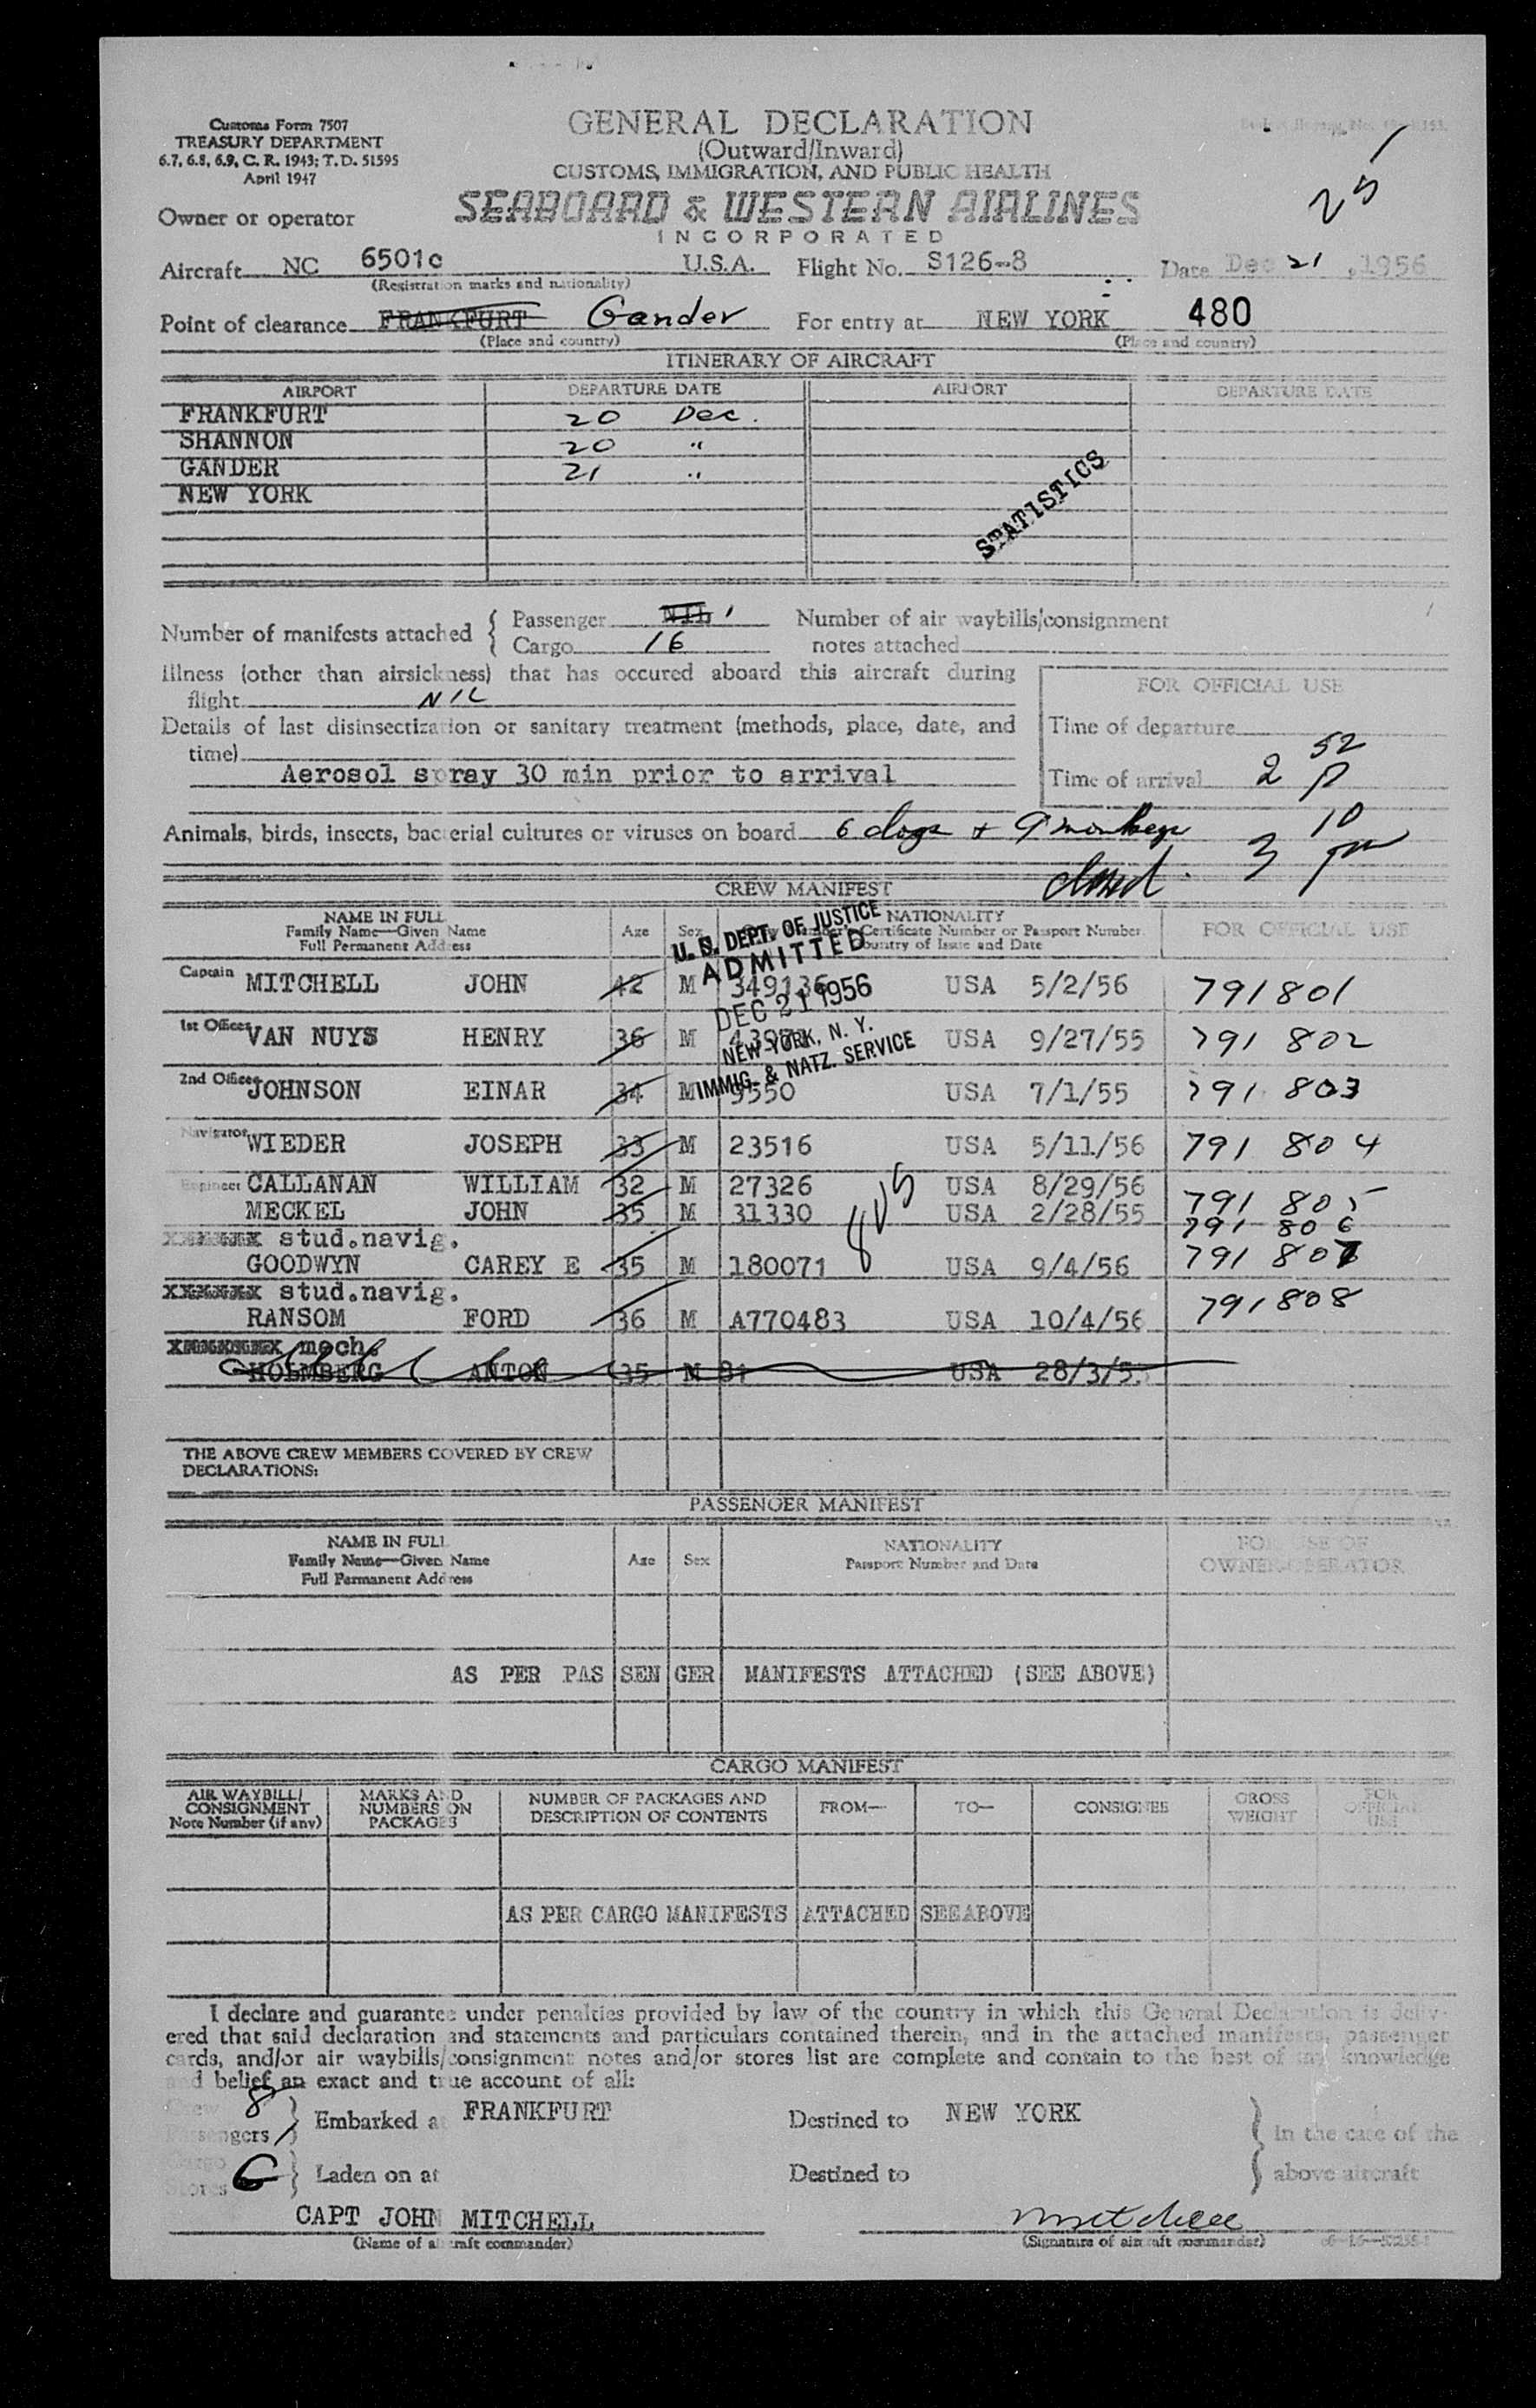 Customs Form 7507
TREASURY DEPARTMENT
6.7, 6.8, 6.9, C. R. 1943; T. D. 51595
April 1947
GENERAL DECLARATION
(Outward/Inward)
CUSTOMS, IMMIGRATION, AND PUBLIC HEALTH
25
Owner or operator SEABOARD & WESTERN AIRLINES
INCORPORATED
Aircraft NC 6501c U.S.A. Flight No. S126-8 Date Dec 21, 1956
(Registration marks and nationality)
Point of clearance FRANKFURT Gander For entry at NEW YORK 480
(Place and country) (Place and country)
ITINERARY OF AIRCRAFT
AIRPORT DEPARTURE DATE AIRPORT DEPARTURE DATE
FRANKFURT 20 Dec.
SHANNON 20 "
GANDER 21 "
NEW YORK
STATISTICS
Number of manifests attached { Passenger NIL 1 Number of air waybills/consignment
Cargo 16 notes attached
Illness (other than airsickness) that has occured aboard this aircraft during
flight NIL
FOR OFFICIAL USE
Details of last disinsectization or sanitary treatment (methods, place, date, and
time)
Time of departure
Aerosol spray 30 min prior to arrival
Time of arrival 2 52 P
Animals, birds, insects, bacterial cultures or viruses on board 6 dogs + 9 monkeys
3 10 pm
CREW MANIFEST
NAME IN FULL
Family Name—Given Name
Full Permanent Address
Age Sex NATIONALITY
Certificate Number or Passport Number
Country of Issue and Date
FOR OFFICIAL USE
U. S. DEPT. OF JUSTICE
ADMITTED
DEC 21 1956
NEW YORK, N. Y.
IMMIG. & NATZ. SERVICE
Captain MITCHELL JOHN 42 M 349136 USA 5/2/56 791801
1st Officer VAN NUYS HENRY 36 M USA 9/27/55 791 802
2nd Officer JOHNSON EINAR 34 M 9550 USA 7/1/55 791 803
Navigator WIEDER JOSEPH 33 M 23516 USA 5/11/56 791 804
Engineer CALLANAN WILLIAM 32 M 27326 USA 8/29/56 791 805
MECKEL JOHN 35 M 31330 USA 2/28/55 791 806
xxxxxx stud.navig.
GOODWYN CAREY E 35 M 180071 USA 9/4/56 791 807
xxxxxx stud.navig.
RANSOM FORD 36 M A770483 USA 10/4/56 791808
xxxxxxx mech.
HOLMBERG ANTON 35 M 81 USA 28/3/55
THE ABOVE CREW MEMBERS COVERED BY CREW
DECLARATIONS:
PASSENGER MANIFEST
NAME IN FULL
Family Name—Given Name
Full Permanent Address
Age Sex NATIONALITY
Passport Number and Date
FOR USE OF
OWNER-OPERATOR
AS PER PASSENGER MANIFESTS ATTACHED (SEE ABOVE)
CARGO MANIFEST
AIR WAYBILL/
CONSIGNMENT
Note Number (if any)
MARKS AND
NUMBERS ON
PACKAGES
NUMBER OF PACKAGES AND
DESCRIPTION OF CONTENTS
FROM— TO— CONSIGNEE GROSS
WEIGHT
FOR
OFFICIAL
USE
AS PER CARGO MANIFESTS ATTACHED SEE ABOVE
I declare and guarantee under penalties provided by law of the country in which this General Declaration is deliv-
ered that said declaration and statements and particulars contained therein, and in the attached manifests, passenger
cards, and/or air waybills/consignment notes and/or stores list are complete and contain to the best of my knowledge
and belief an exact and true account of all:
Crew 8
Passengers 1 } Embarked at FRANKFURT Destined to NEW YORK } in the case of the
Cargo
Stores } Laden on at Destined to } above aircraft
CAPT JOHN MITCHELL Mitchell
(Name of aircraft commander) (Signature of aircraft commander)